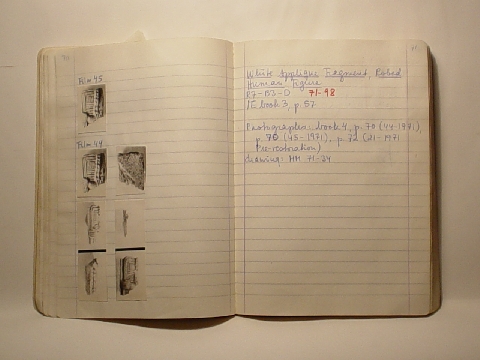 Film 45
Film 44
White Applique Fragment, Robed
Human Figure
R7-B3-D 71-98
IE book 3, p. 57
Photographs: book 4, p. 70 (44-1971),
p. 70 (45-1971), p. 72 (21-1971
Pre-restoration)
drawing: HM 71-24